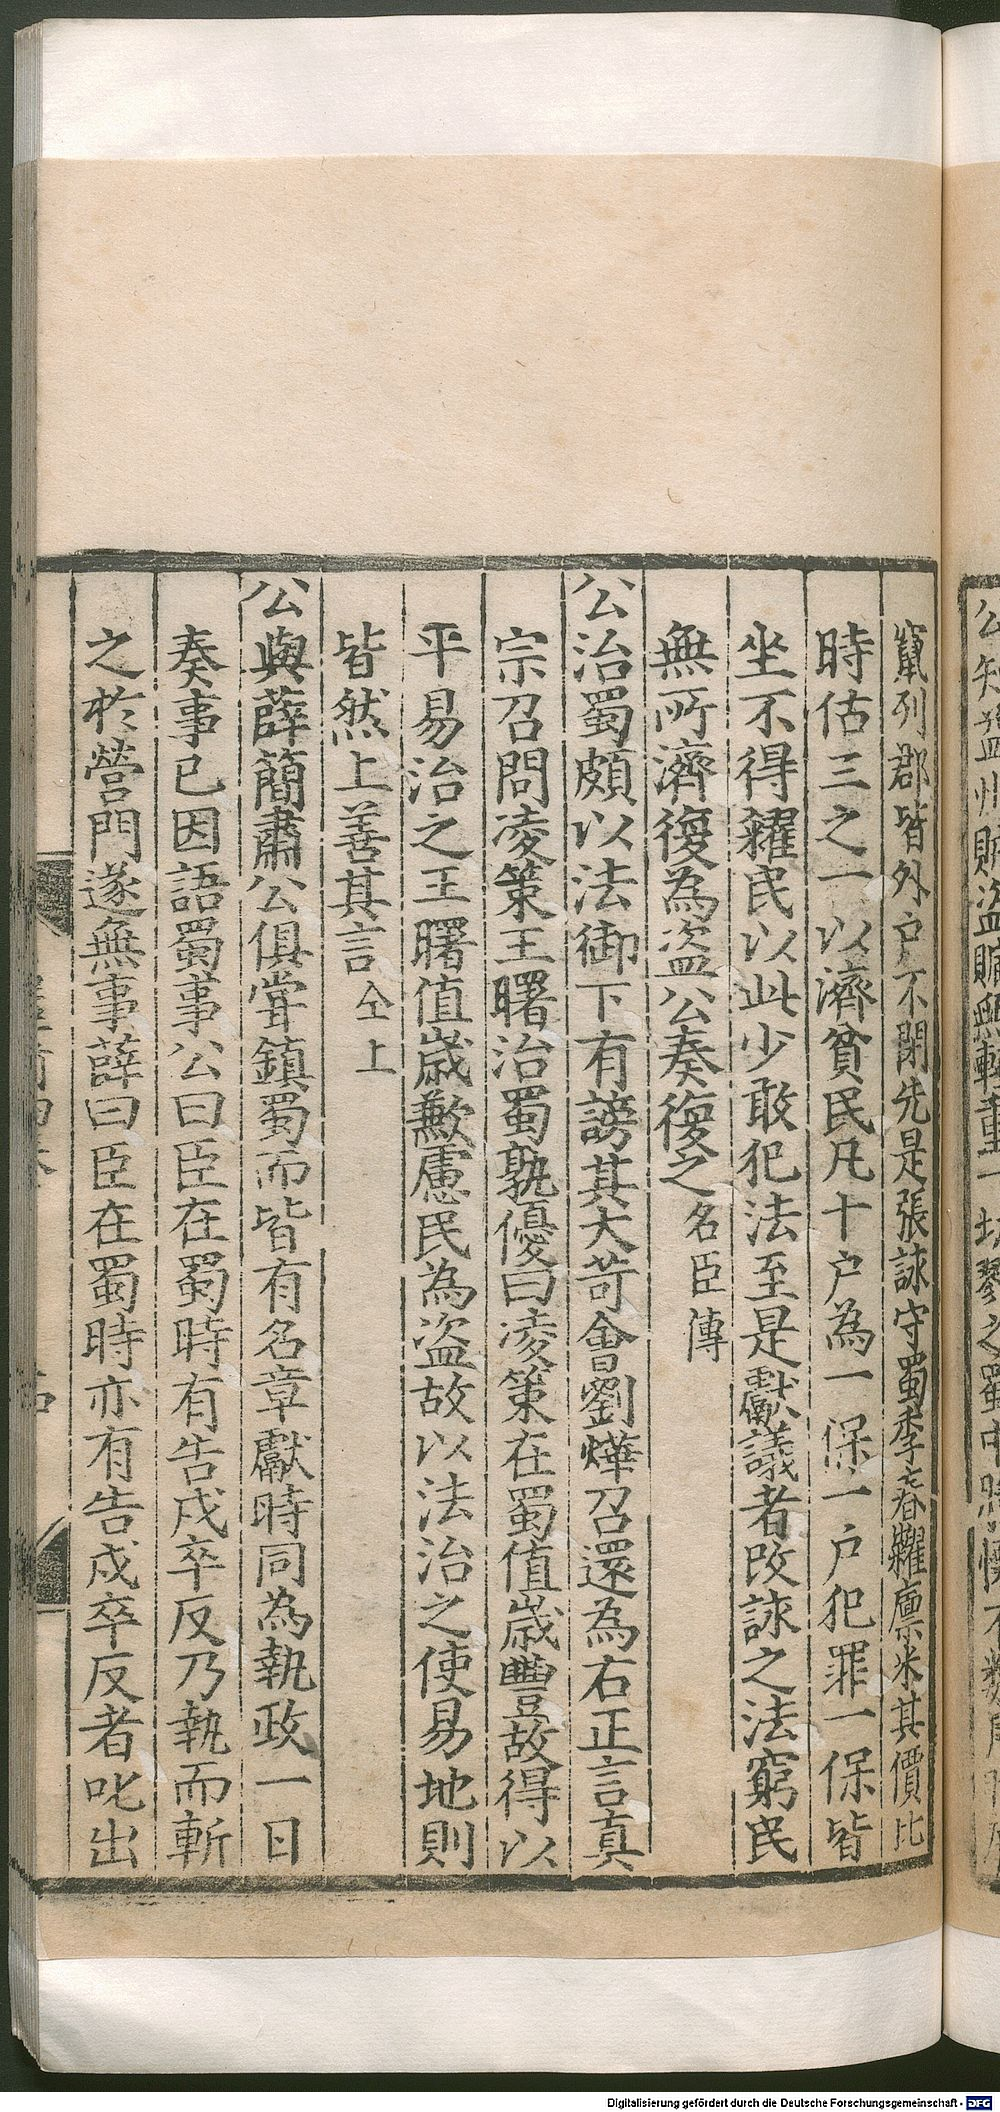 竄列郡皆外户不閉先是張詠守蜀季春糶廪米其價比
時估三之一以濟貧民凡十户為一保一户犯罪一保皆
坐不得糴民以此少敢犯法至是獻議者改詠之法窮民
無所濟復為盗公奏復之名臣傳
公治蜀頗以法御下有謗其大苛會劉燁召還為右正言真
宗召問凌策王曙治蜀孰優曰凌策在蜀值歲豐故得以
平易治之王曙值歲歉慮民為盗故以法治之使易地則
皆然上善其言仝上
公與薛簡肅公俱甞鎮蜀而皆有名章獻時同為執政一日
奏事已因語蜀事公曰臣在蜀時有告戍卒反乃執而斬
之扵營門遂無事薛曰臣在蜀時亦有告戍卒反者叱出
Digitalisierung gefördert durch die Deutsche Forschungsgemeinschaft - DFG